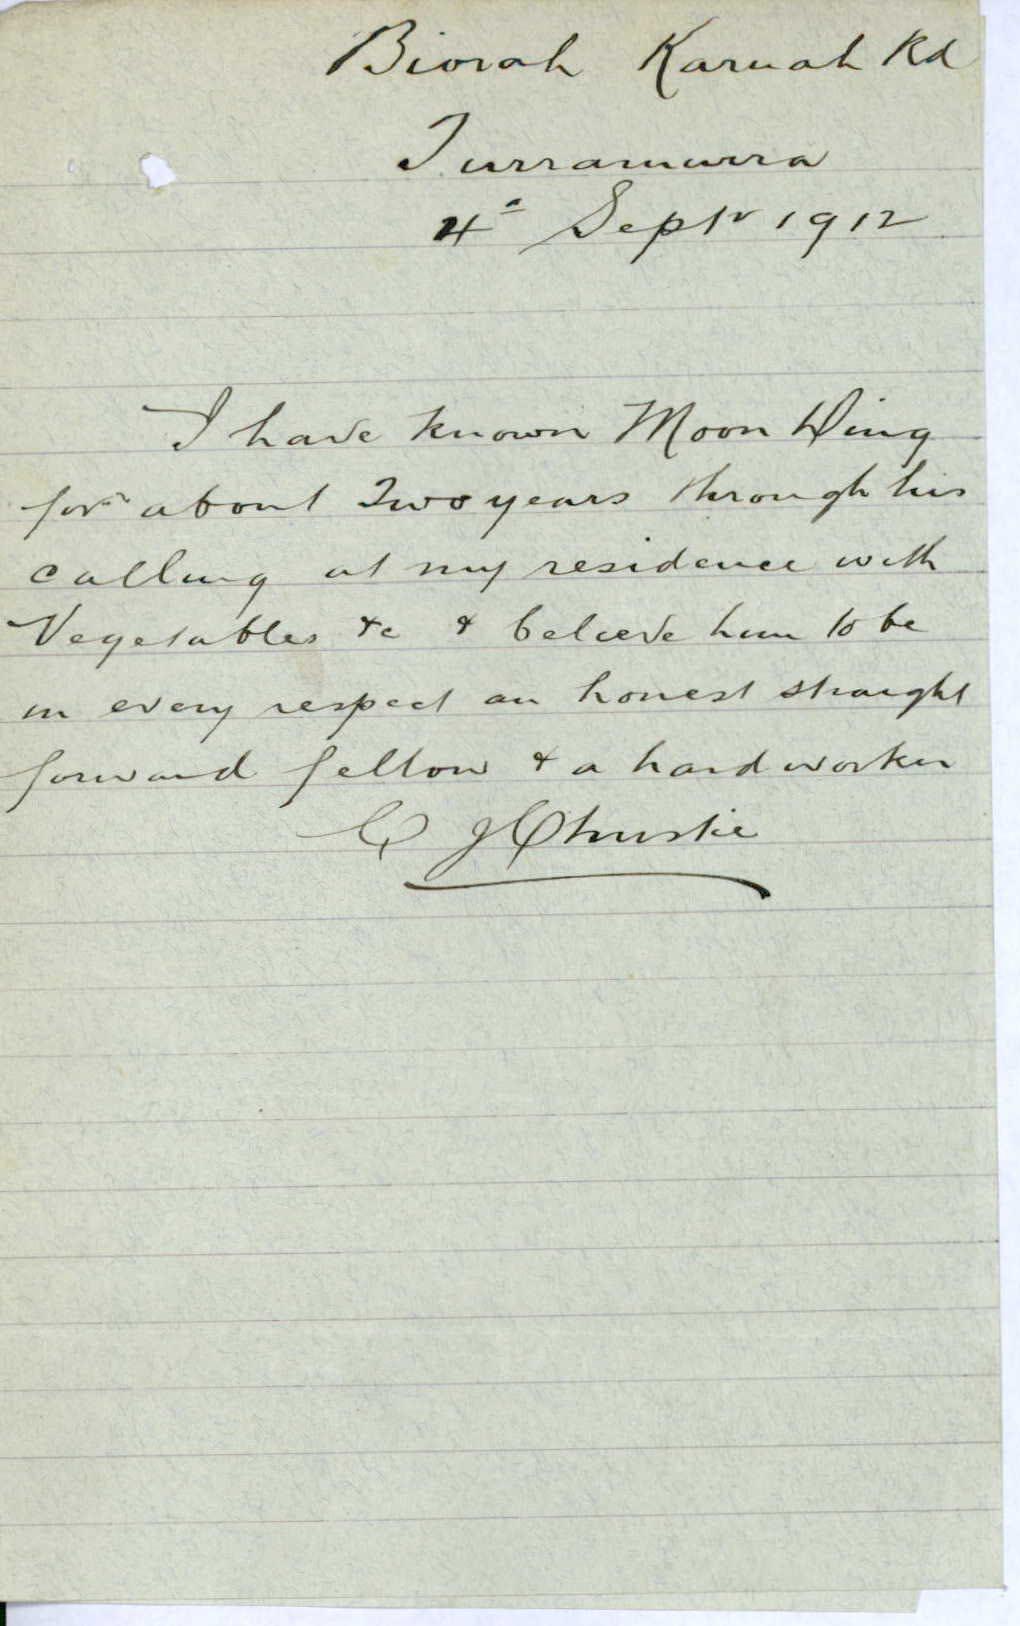 Biorah Karuah Rd
Turramurra
4th Septr 1912
I have known Moon Hing
for about Two years through his
calling at my residence with
Vegetables &c & believe him to be
in every respect an honest straight
forward fellow & a hard worker
C J Christie